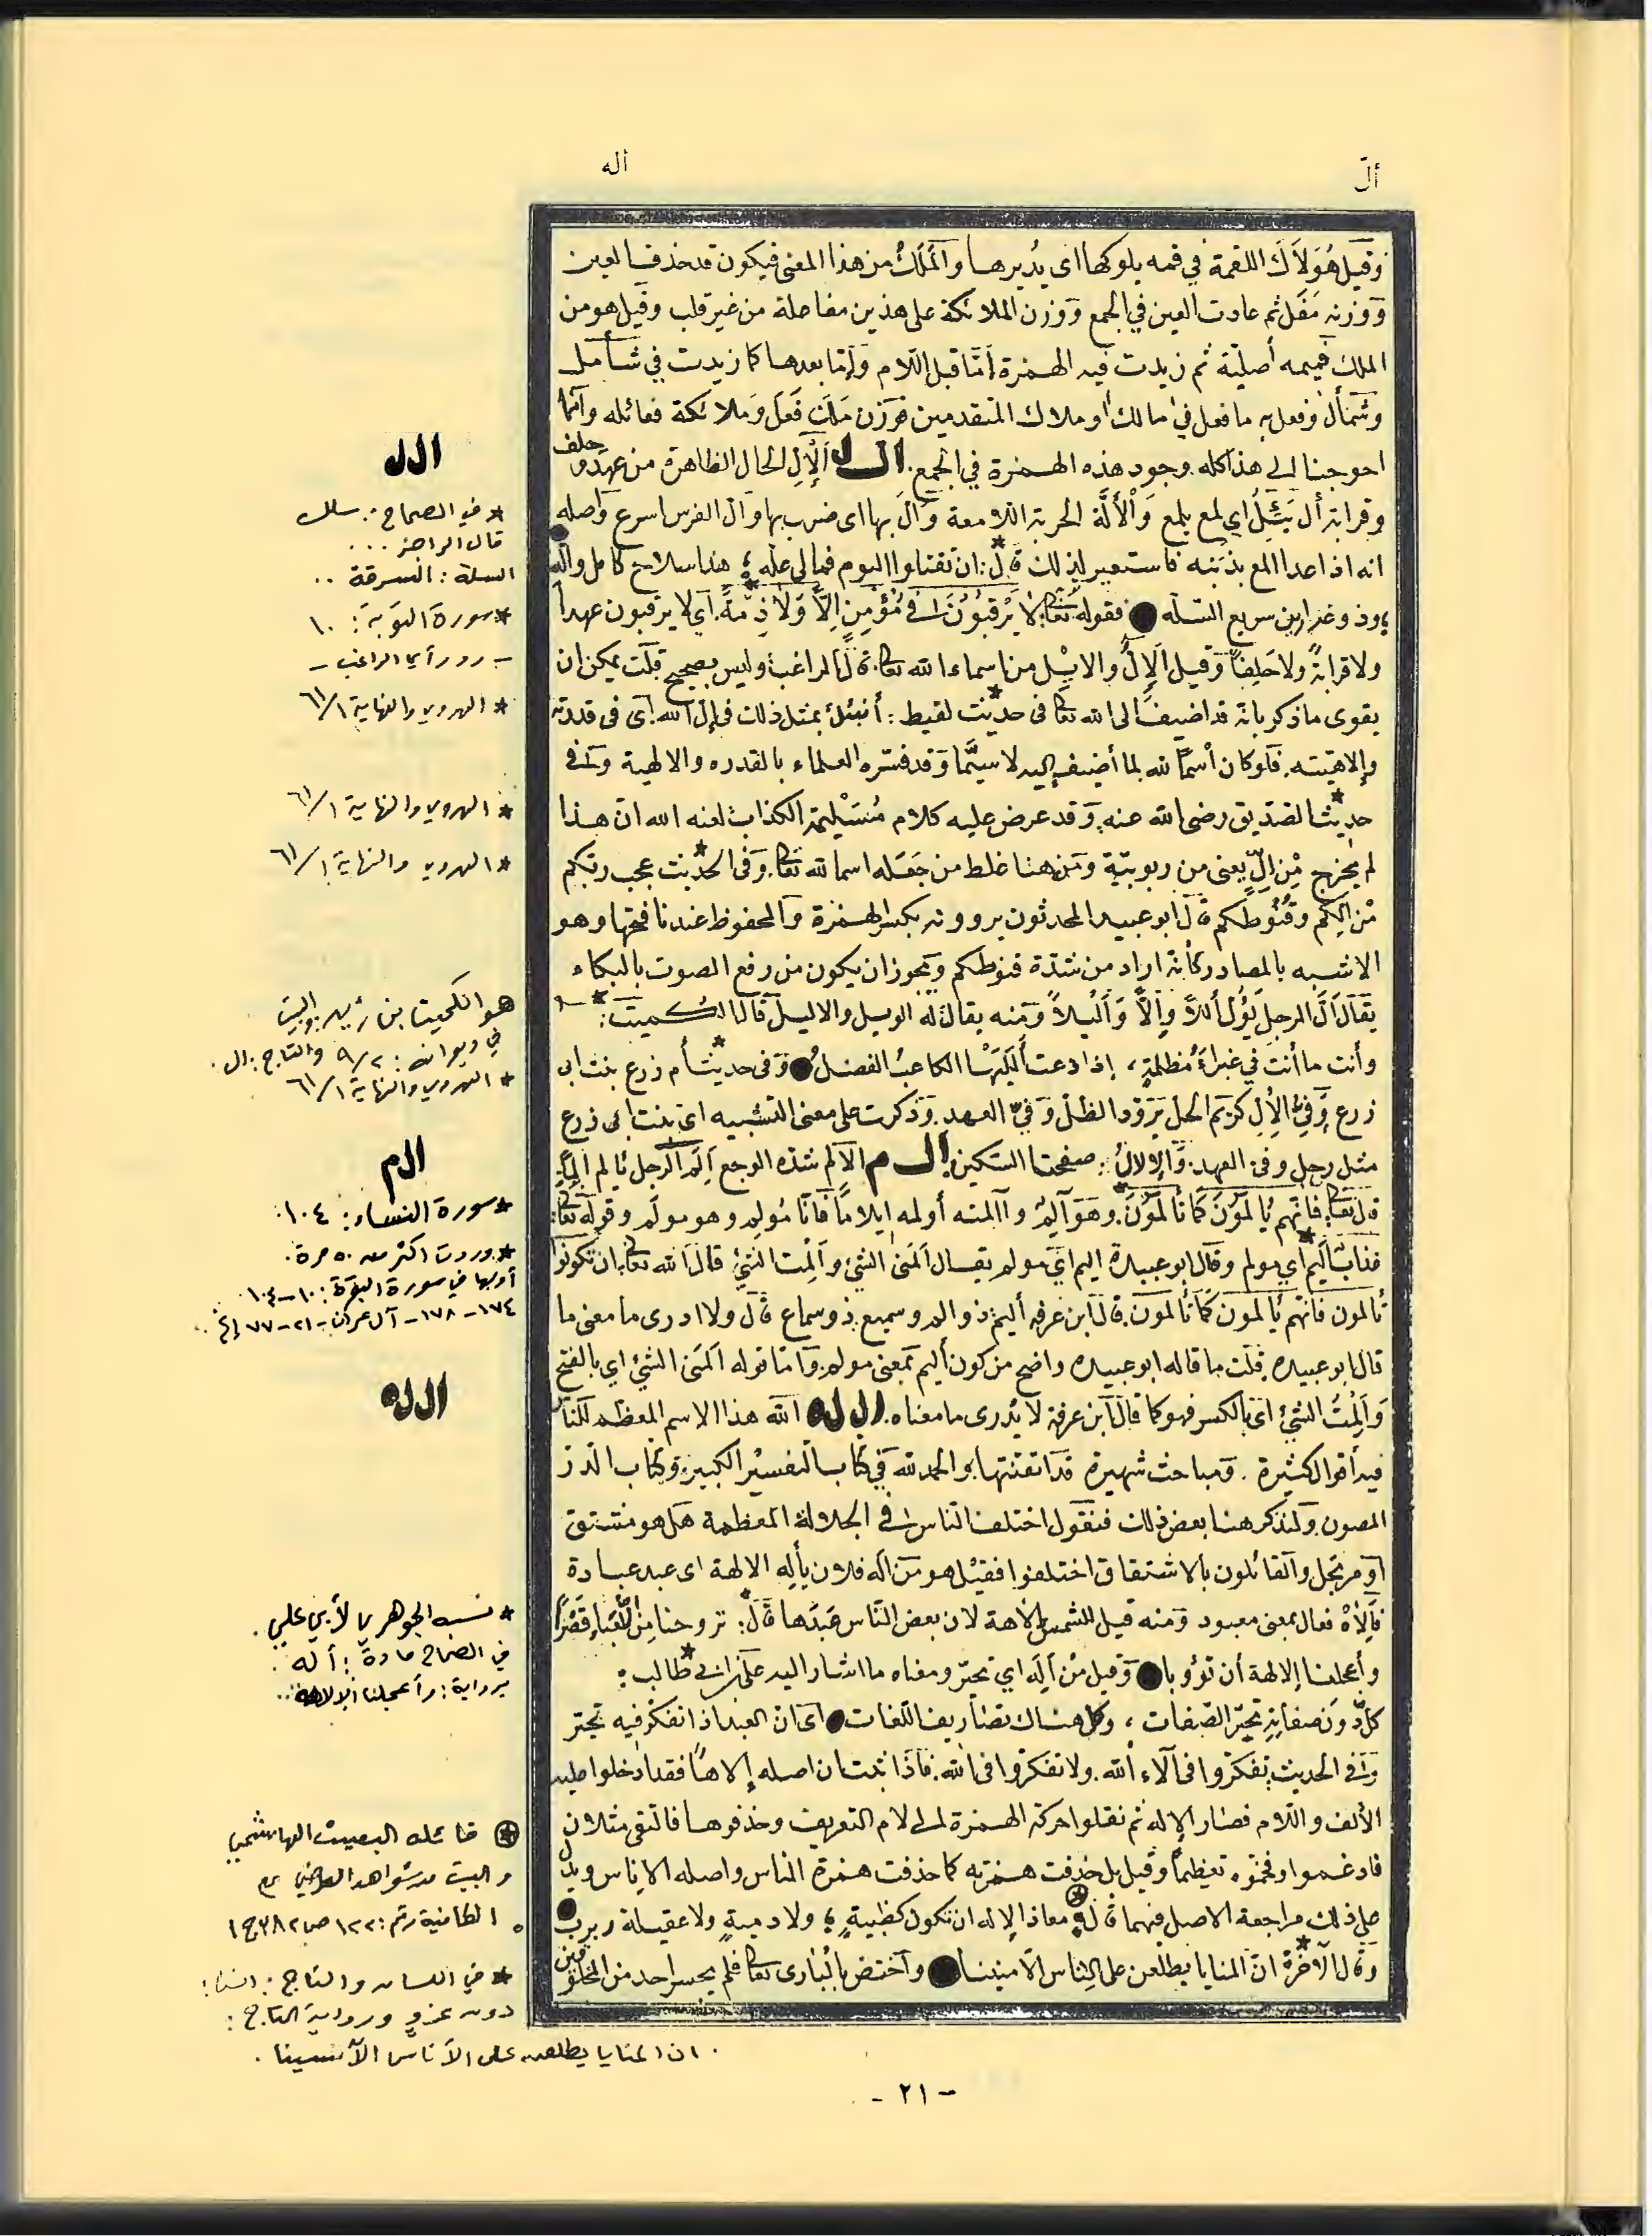 ألّ
أله
وقيل هو من لاك اللقمة في فمه يلوكها اى يديرها والملك من هذا المعنى فيكون قد حذفت العين
ووزنه مفل ثم عادت العين في الجمع ووزن الملائكة على هذين مفاعلة من غير قلب وقيل هو من
الملك فميمه أصلية ثم زيدت فيه الهمزة إمّا قبل اللام وإمّا بعدها كما زيدت في شأمل
وشمأل وفعل به ما فعل في مالك او ملاك المتقدمين فوزن ملك فعل وملائكة فعائله وانما
احوجنا الى هذا كله وجود هذه الهمزة في الجمع. ا ل ل الإلّ الحال الظاهرة من عهد وحلف
وقرابة أل يئلّ اي لمع يلمع والألّة الحربة اللامعة وألّ بها اى ضرب بها وألّ الفرس اسرع واصله
انه اذا عدا المع بذنبه فاستعير لذلك قال*: ان تقتلوا اليوم فمالى علّه ؛ هذا سلاح كامل وألّه
؛ وذو غرارين سريع السّلّه فقوله تعالى: لا يرقبون في مؤمن إلاًّ ولا ذمّة*. اي لا يرقبون عهداً
ولا قرابةً ولا حلفاً وقيل الإلّ والايل من اسماء الله تعالى. قال الراغب وليس بصحيح قلت يمكن ان
يقوى ما ذكر بانه قد اضيف الى الله تعالى فى حديث* لقيط: أنبئك بمثل ذلك في إلّ الله. اى فى قدرته
وإلاهيته. فلو كان اسماً لله لما أضيف إليه لا سيّما وقد فسّره العلماء بالقدره والالهية وفى
حديث* الصّدّيق رضى الله عنه، وقد عرض عليه كلام مسيلمة الكذاب لعنه الله ان هذا
لم يخرج من إلّ يعنى من ربوبيّة ومن هنا غلط من جعله اسما لله تعالى. وفى الحديث* عجب ربّكم
من إلّكم وقنوطكم قال ابو عبيد المحدثون يروونه بكسر الهمزة والمحفوظ عندنا فتحها وهو
الاشبه بالمصادر كأنه اراد من شدّة قنوطكم ويجوز ان يكون من رفع الصوت بالبكاء
يقال ألّ الرجل يؤلّ أللاً وإلاًّ وأليلاً ومنه يقال له الويل والاليل قال الكميت*:
وأنت ما أنت في غبراء مظلمةٍ، إذا دعت ألليها الكاعب الفضل وفى حديث* أم زرع بنت ابى
زرع وفيّ الإلّ كريم الخلّ برود الظلّ وفيّ العهد. وذكرت على معنى التشبيه اى بنت ابى زرع
مثل رجل وفيّ العهد. والإلال: صفحتا السكين. ا ل م الالم شدّه الوجع ألم الرجل يألم ألماً.
قال تعالى: فانّهم يألمون كما تألمون*. وهو آلم وآلمته أولمه ايلاماً فأنا مولم وهو مولم وقوله تعالى:
عذاب أليم* اي مولم وقال ابو عبيدة اليم اي مولم يقال آلمنى الشئ وألمت الشئ قال الله تعالى: ان تكونوا
تألمون فانّهم يألمون كما تألمون. قال ابن عرفه أليم ذو الم وسميع ذو سماع قال ولا ادرى ما معنى ما
قال ابو عبيده. قلت ما قاله ابو عبيده واضح من كون أليم بمعنى مولم. وأمّا قوله ألمنى الشئ اي بالفتح
وألمت الشئ اى بالكسر فهو كما قال ابن عرفة لا يدرى ما معناه. ا ل له الله هذا الاسم المعظم للنّاس
فيه أقوال كثيرة . ومباحث شهيرة قد اتقنتها والحمد لله في كتاب التفسير الكبير، وكتاب الدّرّ
المصون، ولنذكر هنا بعض ذلك فنقول اختلف النّاس في الجلالة المعظمة هل هو مشتق
أو مرتجل والقائلون بالاشتقاق اختلفوا فقيل هو من أله فلان يأله الالهة اى عبد عبادة
فإلاه فعال بمعنى معبود ومنه قيل للشمس إلاهة لان بعض النّاس عبدها قال*: تروحنا من اللعباء قصراً
وأعجلنا إلالهة أن تؤوبا وقيل من أله اي تحيّر ومعناه ما اشار اليه علي بن ابى طالب*:
كلّ دون صفاته تحيّر الصّفات، وضلّ هناك تصاريف اللّغات اى ان العبد اذا تفكّر فيه تحيّر
وفى الحديث تفكّروا فى آلاء الله. ولا تفكّروا فى الله. فاذا ثبت ان اصله إلاهاً فقد ادخلوا عليه
الألف واللام فصار الإله ثم نقلوا حركة الهمزة لى لام التعريف وحذفوها فالتقى مثلان
فادغموا وفخّموه تعظيماً وقيل بل حذفت همزته كما حذفت همزة الناس واصله الاناس ويدلّ
على ذلك مراجعة الاصل فيهما قال*؛ معاذ الإله ان تكون كظبيةٍ؛ ولا دميةٍ ولا عقيلة ربرب
وقال الآخر*: انّ المنايا يطّلعن على الاناس الآمنينا واختصّ بالبارى تعالى فلم يجسر احد من المخلوقين
ا ل ل
* في الصحاح: سلل
قال الراجز ...
السلة: السرقة ..
* سورة التوبة: ١٠
– رد رأي الراغب –
* الهروي والنهاية ٦١/١
* الهروي والنهاية ٦١/١
* الهروي والنهاية ٦١/١
هو الكميت بن زيد والبيت
في ديوانه: ٩/٢ والتاج: ال.
* الهروي والنهاية ٦١/١
ا ل م
* سورة النساء: ١٠٤.
* وردت اكثر من ٥٠ مرة.
أولها في سورة البقرة: ١٠-١٠٤
١٧٤-١٧٨- آل عمران-٢١-٧٧ إلخ..
ا ل له
* نسبه الجوهري لأبي علي.
في الصحاح مادة: أله.
برواية: وأعجلنا الإلاهة..
قائله البعيث الهاشمي
والبيت من شواهد الرضي على
الكافية رقم: ١٢٢ ص ٣٨٢ ج ١
* في اللسان والتاج: انس:
دون عزو ورواية التاج:
. ان المنايا يطلعن على الأناس الآمنينا .
- ٢١ -